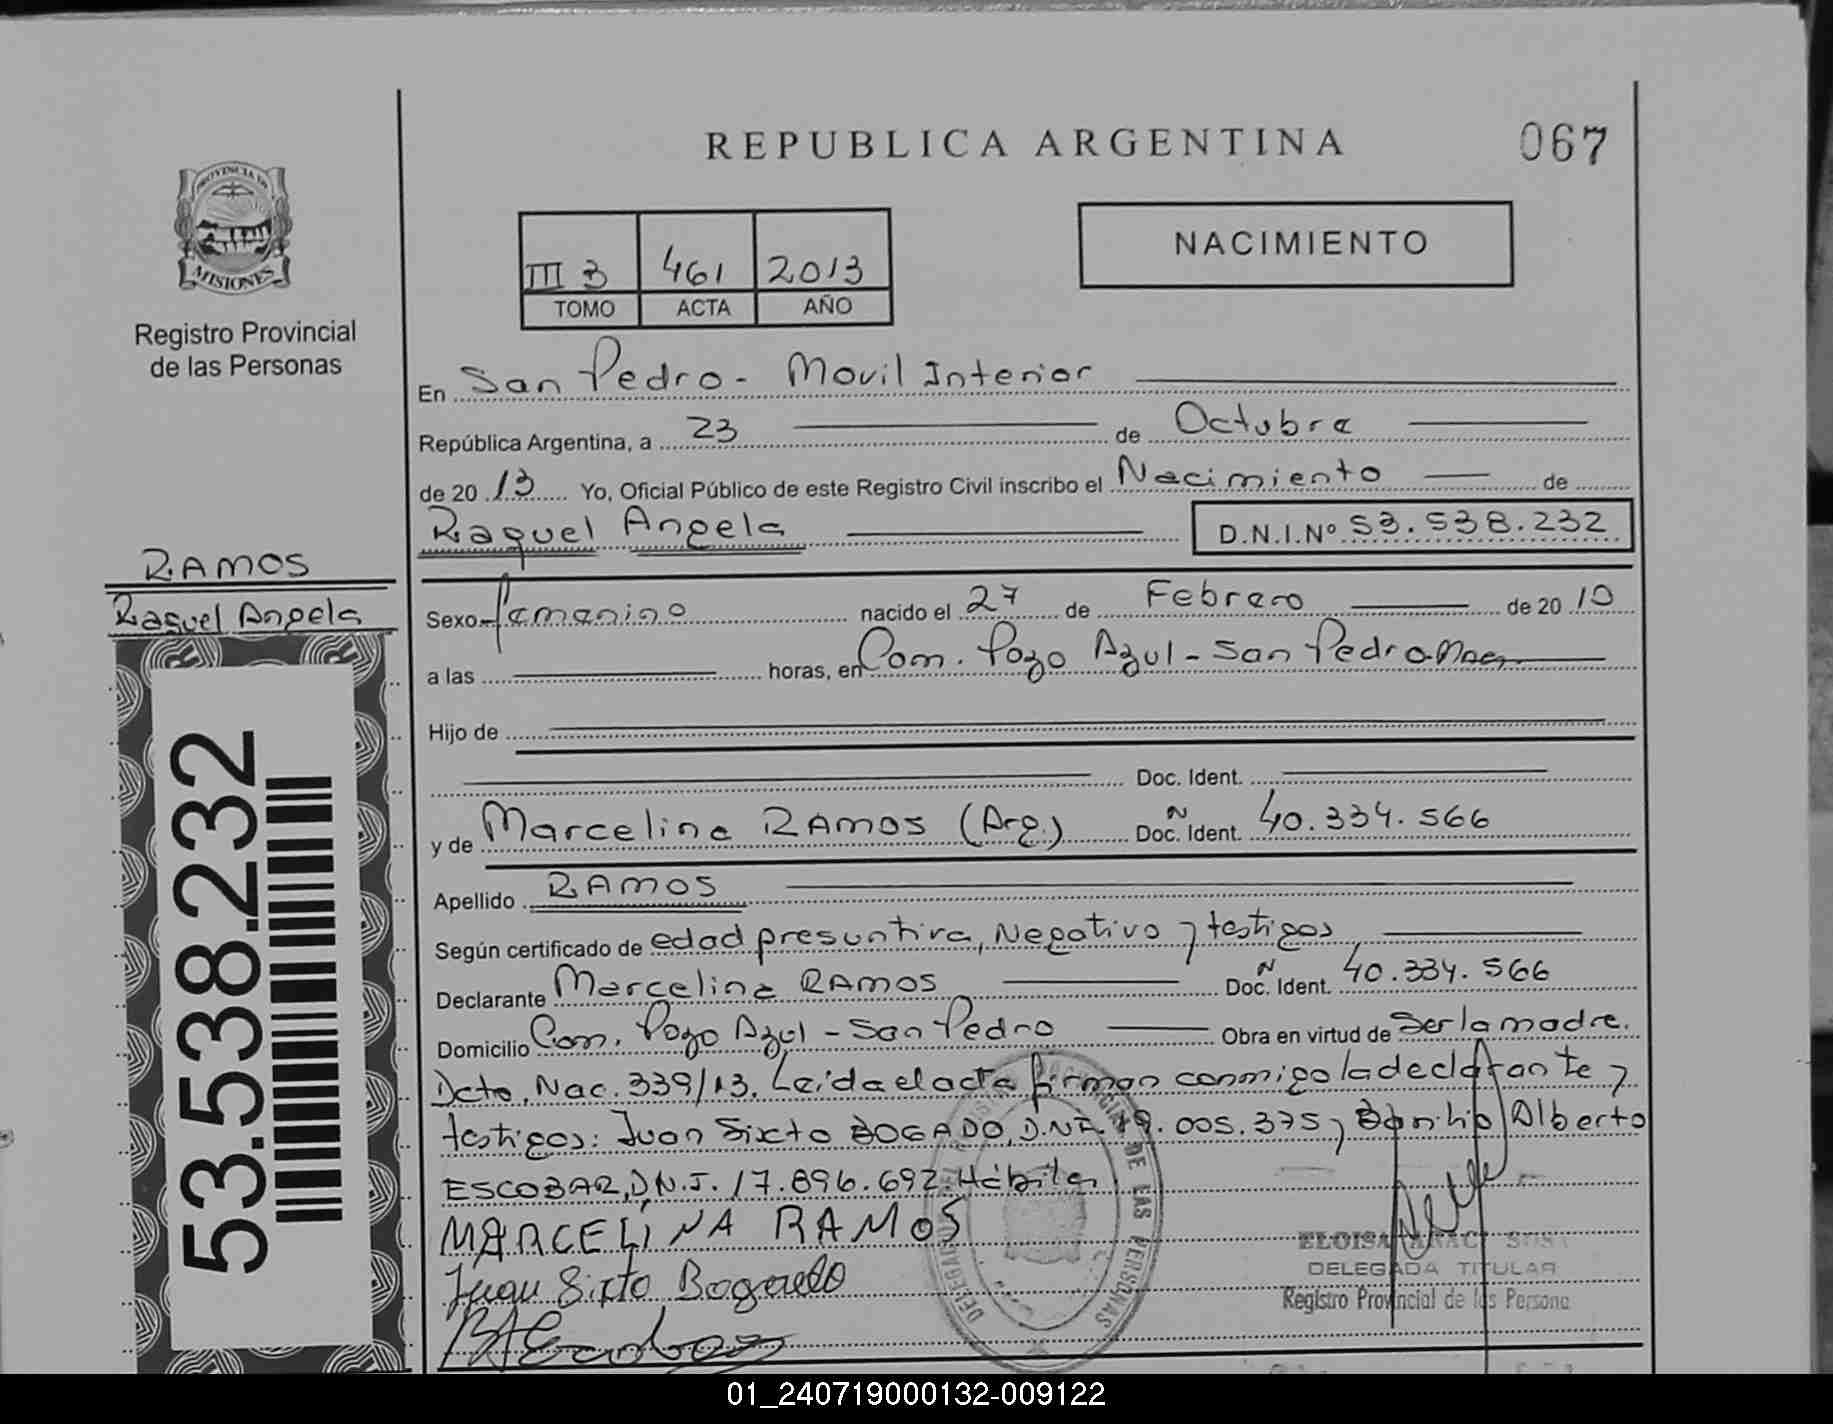 REPUBLICA ARGENTINA
067
PROVINCIA DE
MISIONES
Registro Provincial
de las Personas
III B 461 2013
TOMO ACTA AÑO
NACIMIENTO
En San Pedro - Movil Interior
República Argentina, a 23 de Octubre
de 2013 Yo, Oficial Público de este Registro Civil inscribo el Nacimiento de
Raquel Angela D.N.I.Nº 53.538.232
RAMOS
Raquel Angela
53.538.232
Sexo femenino nacido el 27 de Febrero de 2010
a las horas, en Com. Pozo Azul - San Pedro. Mnes
Hijo de
Doc. Ident.
y de Marcelina RAMOS (Arg.) Doc. Ident. N 40.334.566
Apellido RAMOS
Según certificado de edad presuntiva, Negativo y testigos
Declarante Marcelina RAMOS Doc. Ident. N 40.334.566
Domicilio Com. Pozo Azul - San Pedro Obra en virtud de Ser la madre.
Dcto. Nac. 339/13. Leida el acta firman conmigo la declarante y
testigos: Juan Sixto BOGADO, D.N.I. 19.005.375 y Basilio Alberto
ESCOBAR, D.N.I. 17.896.692 Hábiles
MARCELINA RAMOS
Juan Sixto Bogado
DE LAS PERSONAS
DELEGADA TITULAR
Registro Provincial de las Persona
01_240719000132-009122